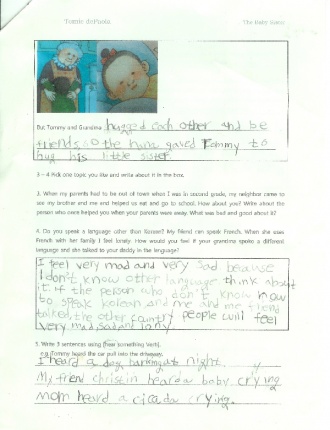 Tomie dePaola The Baby Sister
But Tommy and Grandma hugged each other and be
friends, so the nurse gaved Tommy to
hug his little sister.
3 – 4 Pick one topic you like and write about it in the box.
3. When my parents had to be out of town when I was in second grade, my neighbor came to
see my brother and me and helped us eat and go to school. How about you? Write about the
person who once helped you when your parents were away. What was bad and good about it?
4. Do you speak a language other than Korean? My friend can speak French. When she uses
French with her family I feel lonely. How would you feel if your grandma spoke a different
language and she talked to your daddy in the language?
I feel very mad and very sad because
I don't know other language think about
it if the person who don't know how
to speak korean and me and me friend
talked the other country people will feel
very mad, sad and
5. Write 3 sentences using (hear something Verb).
e.g. Tommy heard the car pull into the driveway.
I heard a dog barking at night.
My friend christin heard a baby crying
mom heard a cicada crying.